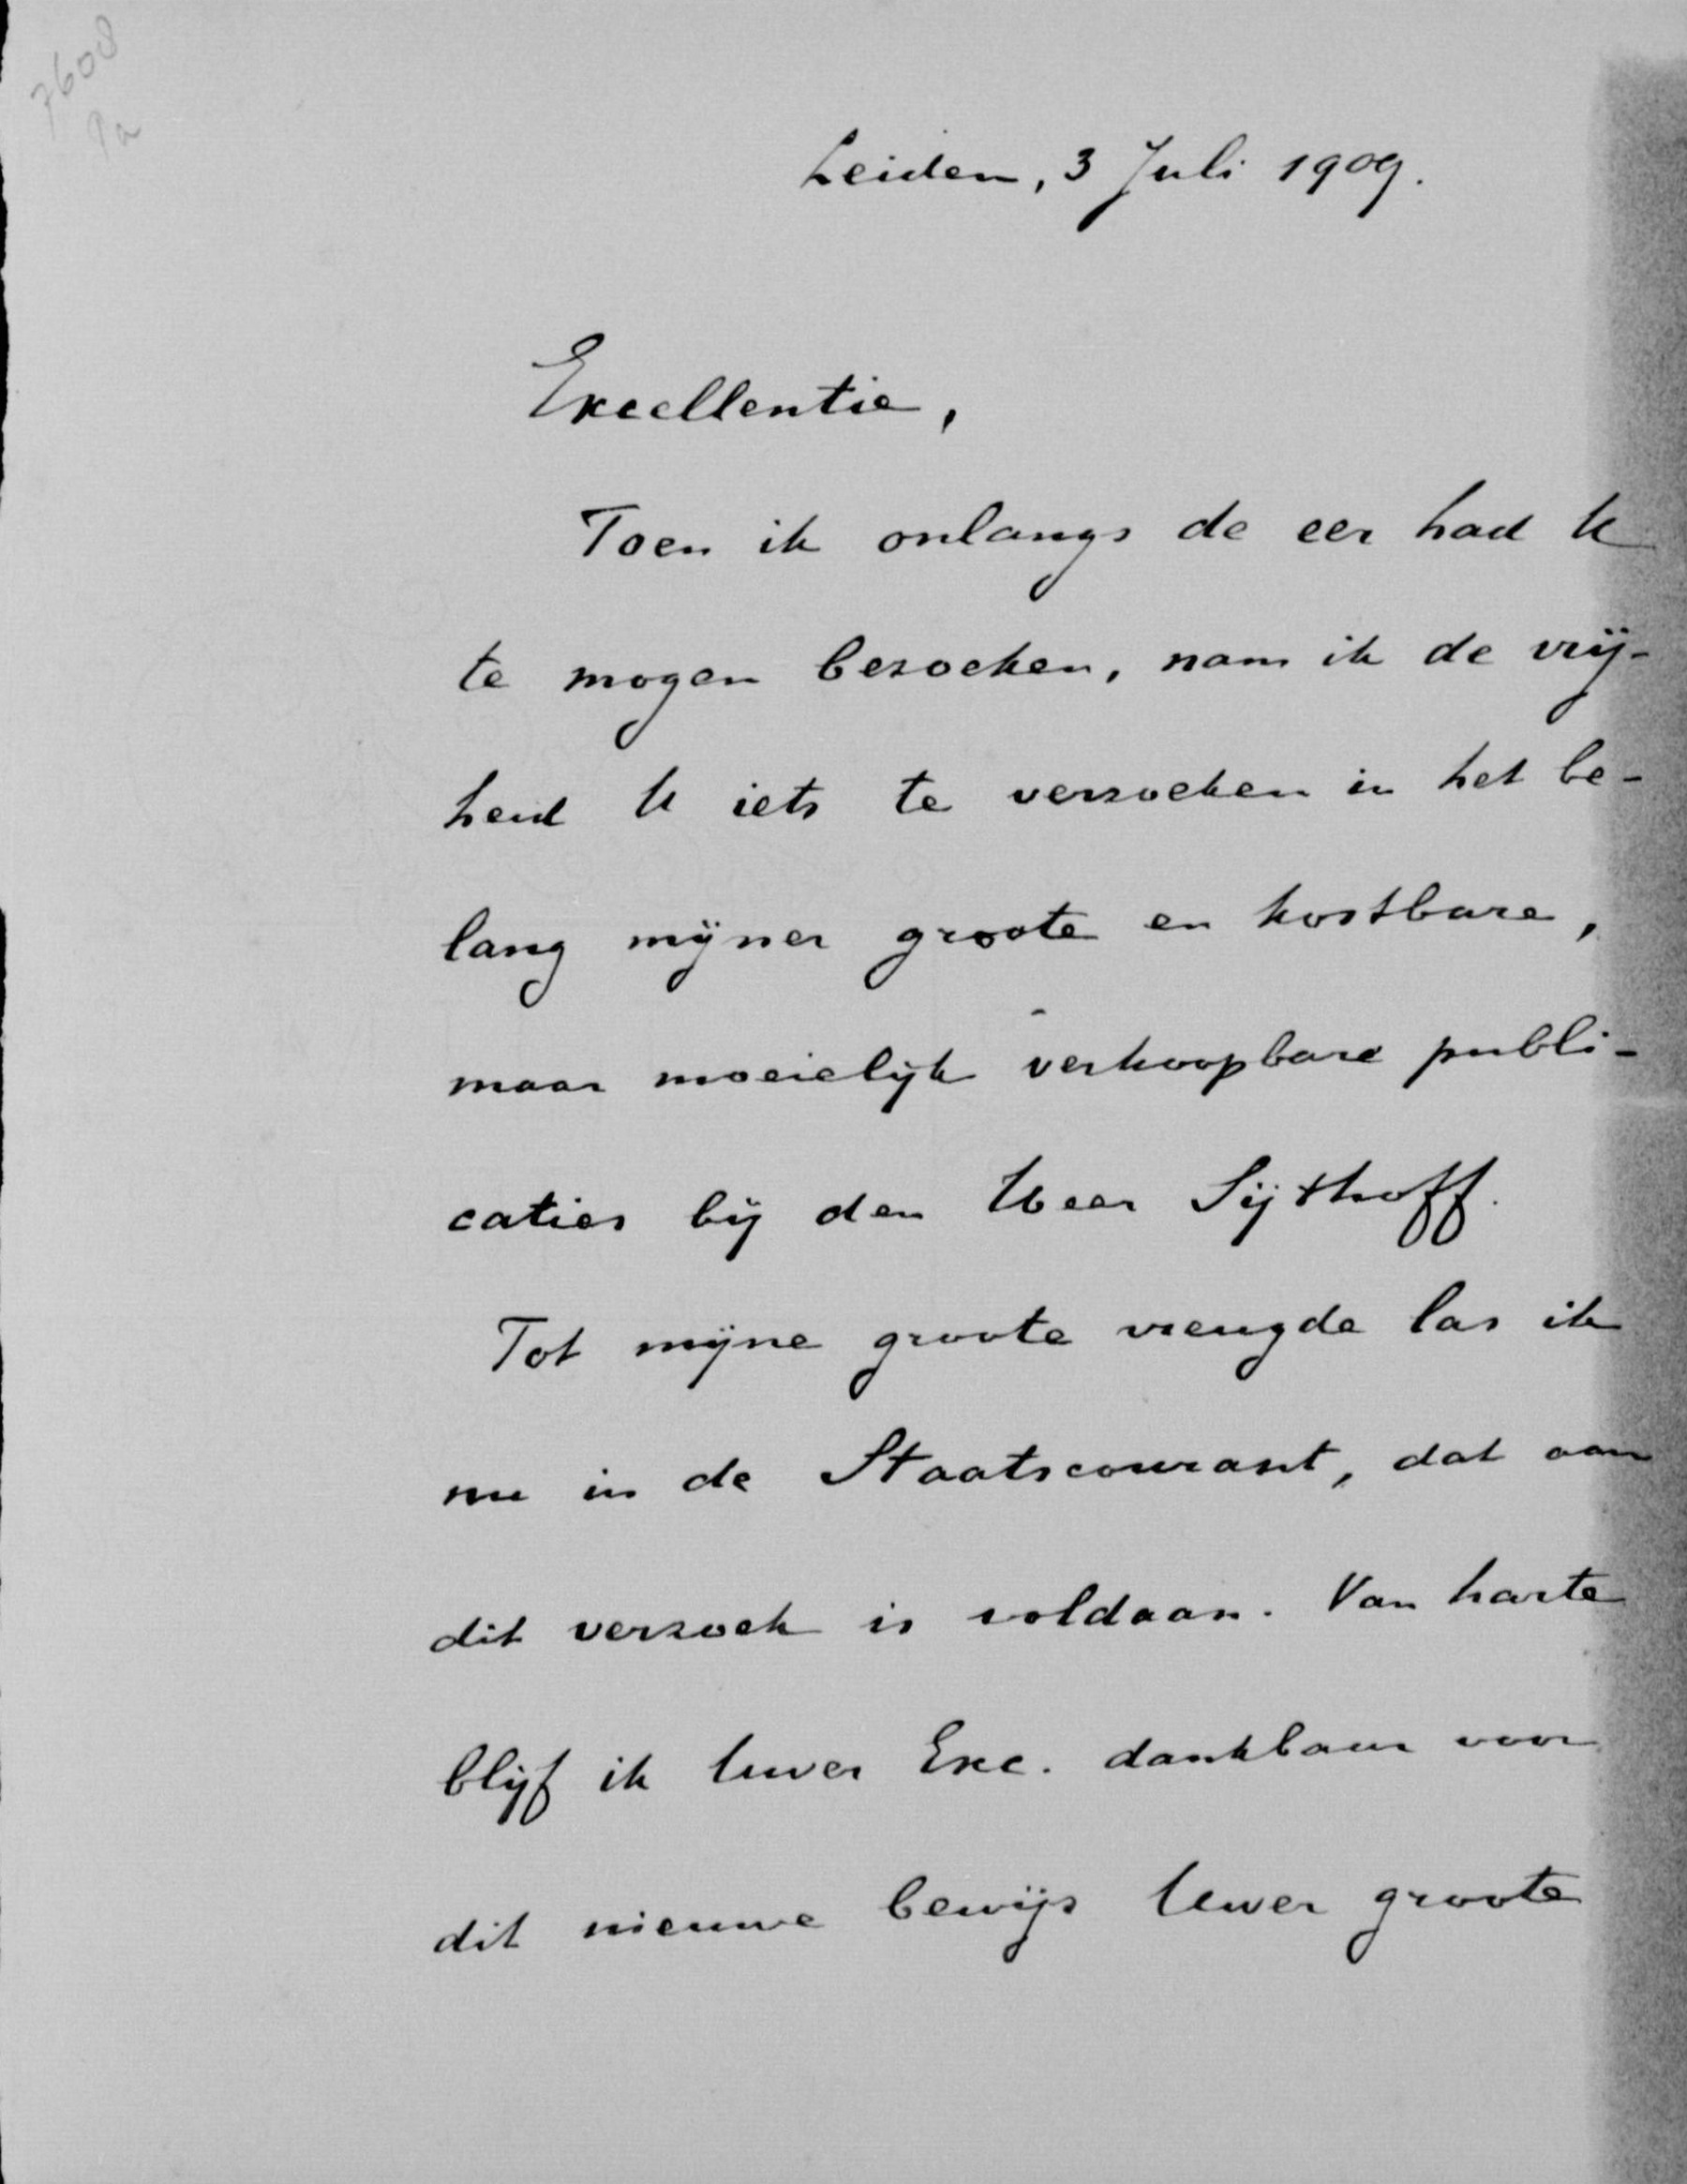 7608
9a
Leiden, 3 Juli 1909.
Excellentie,
Toen ik onlangs de eer had U
te mogen bezoeken, nam ik de vrij-
heid U iets te verzoeken in het be-
lang mijner groote en kostbare,
maar moeielijk verkoopbare publi-
caties bij den Heer Sijthoff.
Tot mijne groote vreugde las ik
nu in de Staatscourant, dat aan
dit verzoek is voldaan. Van harte
blijf ik Uwer Exc. dankbaar voor
dit nieuwe bewijs Uwer groote